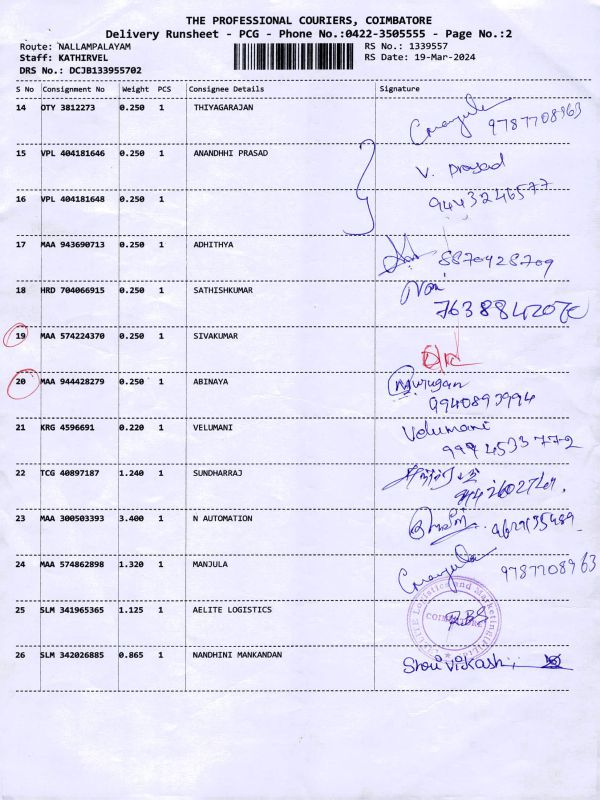 THE PROFESSIONAL COURIERS, COIMBATORE
Delivery Runsheet - PCG - Phone No.:0422-3505555 - Page No.:2
Route: NALLAMPALAYAM RS No.: 1339557
Staff: KATHIRVEL RS Date: 19-Mar-2024
DRS No.: DCJB133955702
S No Consignment No Weight PCS Consignee Details Signature
14 OTY 3812273 0.250 1 THIYAGARAJAN
9787708963
15 VPL 404181646 0.250 1 ANANDHHI PRASAD V. Prasad
16 VPL 404181648 0.250 1 9443246577
17 MAA 943690713 0.250 1 ADHITHYA 8870428709
18 HRD 704066915 0.250 1 SATHISHKUMAR
19 MAA 574224370 0.250 1 SIVAKUMAR
20 MAA 944428279 0.250 1 ABINAYA Murugan
9940893994
21 KRG 4596691 0.220 1 VELUMANI Velumani
9994533772
22 TCG 40897187 1.240 1 SUNDHARRAJ
23 MAA 300503393 3.400 1 N AUTOMATION
24 MAA 574862898 1.320 1 MANJULA Manjula
9787708963
25 SLM 341965365 1.125 1 AELITE LOGISTICS
COIMBATORE
26 SLM 342026885 0.865 1 NANDHINI MANKANDAN Shri Vikash